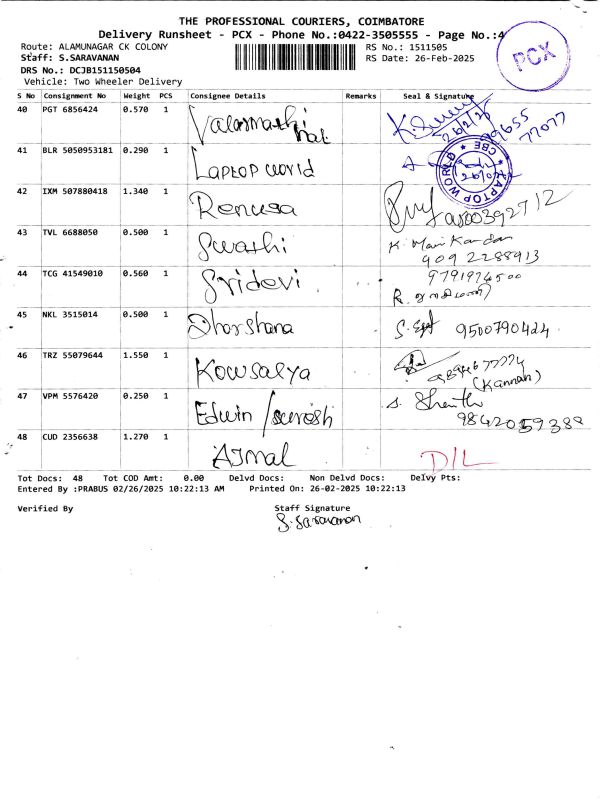 THE PROFESSIONAL COURIERS, COIMBATORE
Delivery Runsheet - PCX - Phone No.:0422-3505555 - Page No.:4
PCX
Route: ALAMUNAGAR CK COLONY
RS No.: 1511505
Staff: S.SARAVANAN
RS Date: 26-Feb-2025
DRS No.: DCJB151150504
Vehicle: Two Wheeler Delivery
S No Consignment No Weight PCS Consignee Details Remarks Seal & Signature
40 PGT 6856424 0.570 1
26/2/25
99655
77077
41 BLR 5050953181 0.290 1 Laptop world
LAPTOP WORLD * CBE *
42 IXM 507880418 1.340 1 Renusa
43 TVL 6688050 0.500 1 Swathi
K. Mani Kandan
909 2288913
44 TCG 41549010 0.560 1 Sridevi
9791974500
45 NKL 3515014 0.500 1 Dharshana 9500790424
46 TRZ 55079644 1.550 1 Kowsalya
(Kannan)
47 VPM 5576420 0.250 1 Edwin / suresh
9842059388
48 CUD 2356638 1.270 1 AJmal D/L
Tot Docs: 48 Tot COD Amt: 0.00 Delvd Docs: Non Delvd Docs: Delvy Pts:
Entered By :PRABUS 02/26/2025 10:22:13 AM Printed On: 26-02-2025 10:22:13
Verified By Staff Signature
S. Saravanan